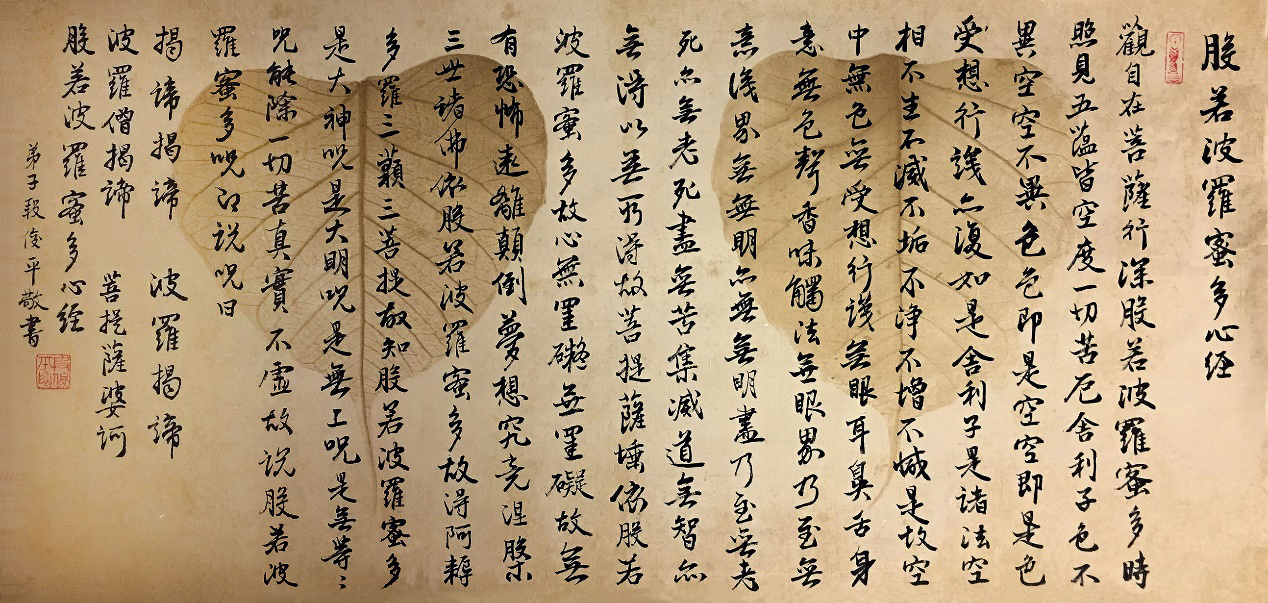 般若波羅蜜多心经
觀自在菩薩行深般若波羅蜜多時
照見五蕴皆空度一切苦厄舍利子色不
異空空不異色色即是空空即是色
受想行識亦復如是舍利子是諸法空
相不生不滅不垢不淨不增不減是故空
中無色無受想行識無眼耳鼻舌身
意無色聲香味觸法無眼界乃至無
意識界無無明亦無無明盡乃至無老
死亦無老死盡無苦集滅道無智亦
無得以無所得故菩提薩埵依般若
波羅蜜多故心無罣礙無罣礙故無
有恐怖遠離顛倒夢想究竟涅槃
三世諸佛依般若波羅蜜多故得阿耨
多羅三藐三菩提故知般若波羅蜜多
是大神咒是大明咒是無上咒是無等々
咒能除一切苦真實不虛故說般若波
羅蜜多咒即說咒曰
揭諦揭諦 波羅揭諦
波羅僧揭諦 菩提薩婆訶
般若波羅蜜多心经
弟子段俊平敬書